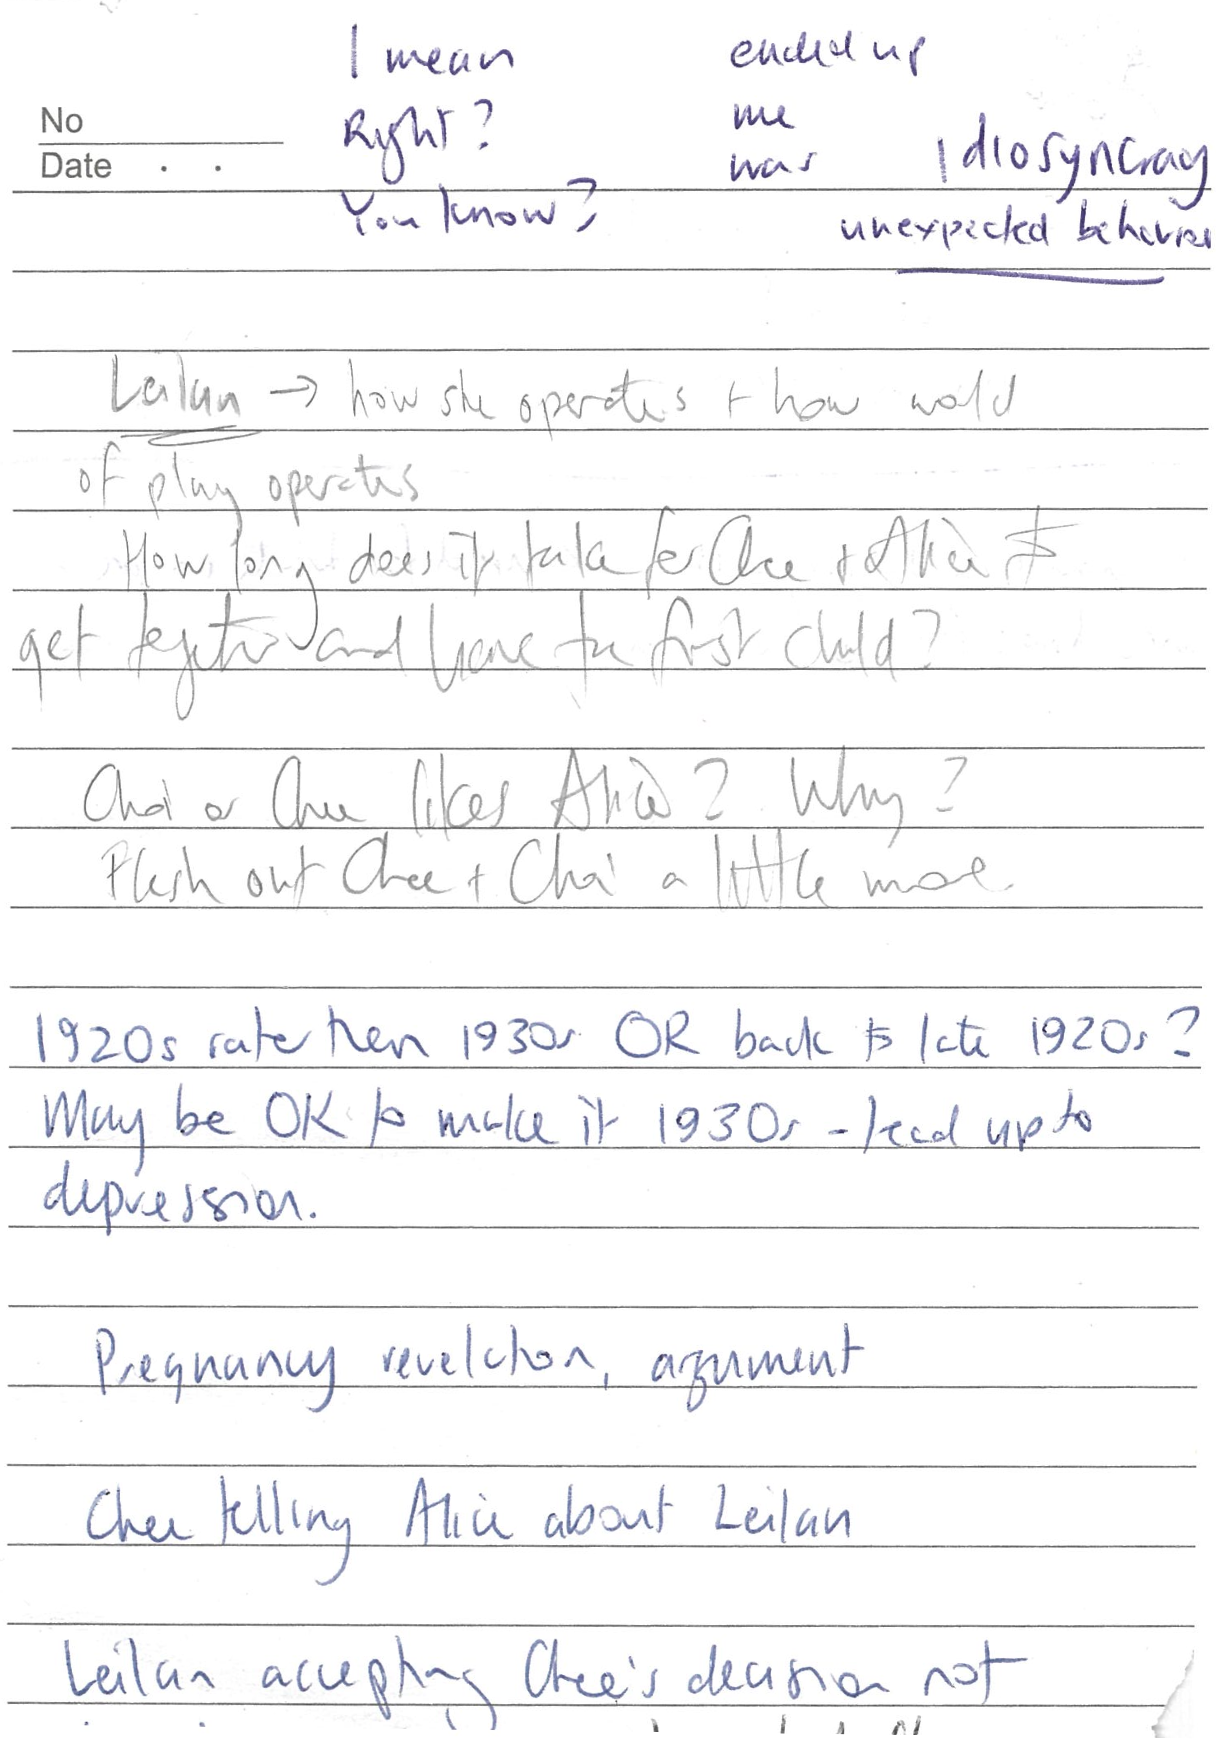 I mean ended up
No Right? me
Date . . was Idiosyncracy
You know? unexpected behavior
Leilan → how she operates + how world
of play operates
How long does it take for Chee + Alice to
get together and have the first child?
Chai or Chee likes Alice? Why?
Flesh out Chee + Chai a little more
1920s rate then 1930s OR back to late 1920s?
May be OK to make it 1930s - lead up to
depression.
Pregnancy revelation, argument
Chee telling Alice about Leilan
Leilan accepting Chee's decision not